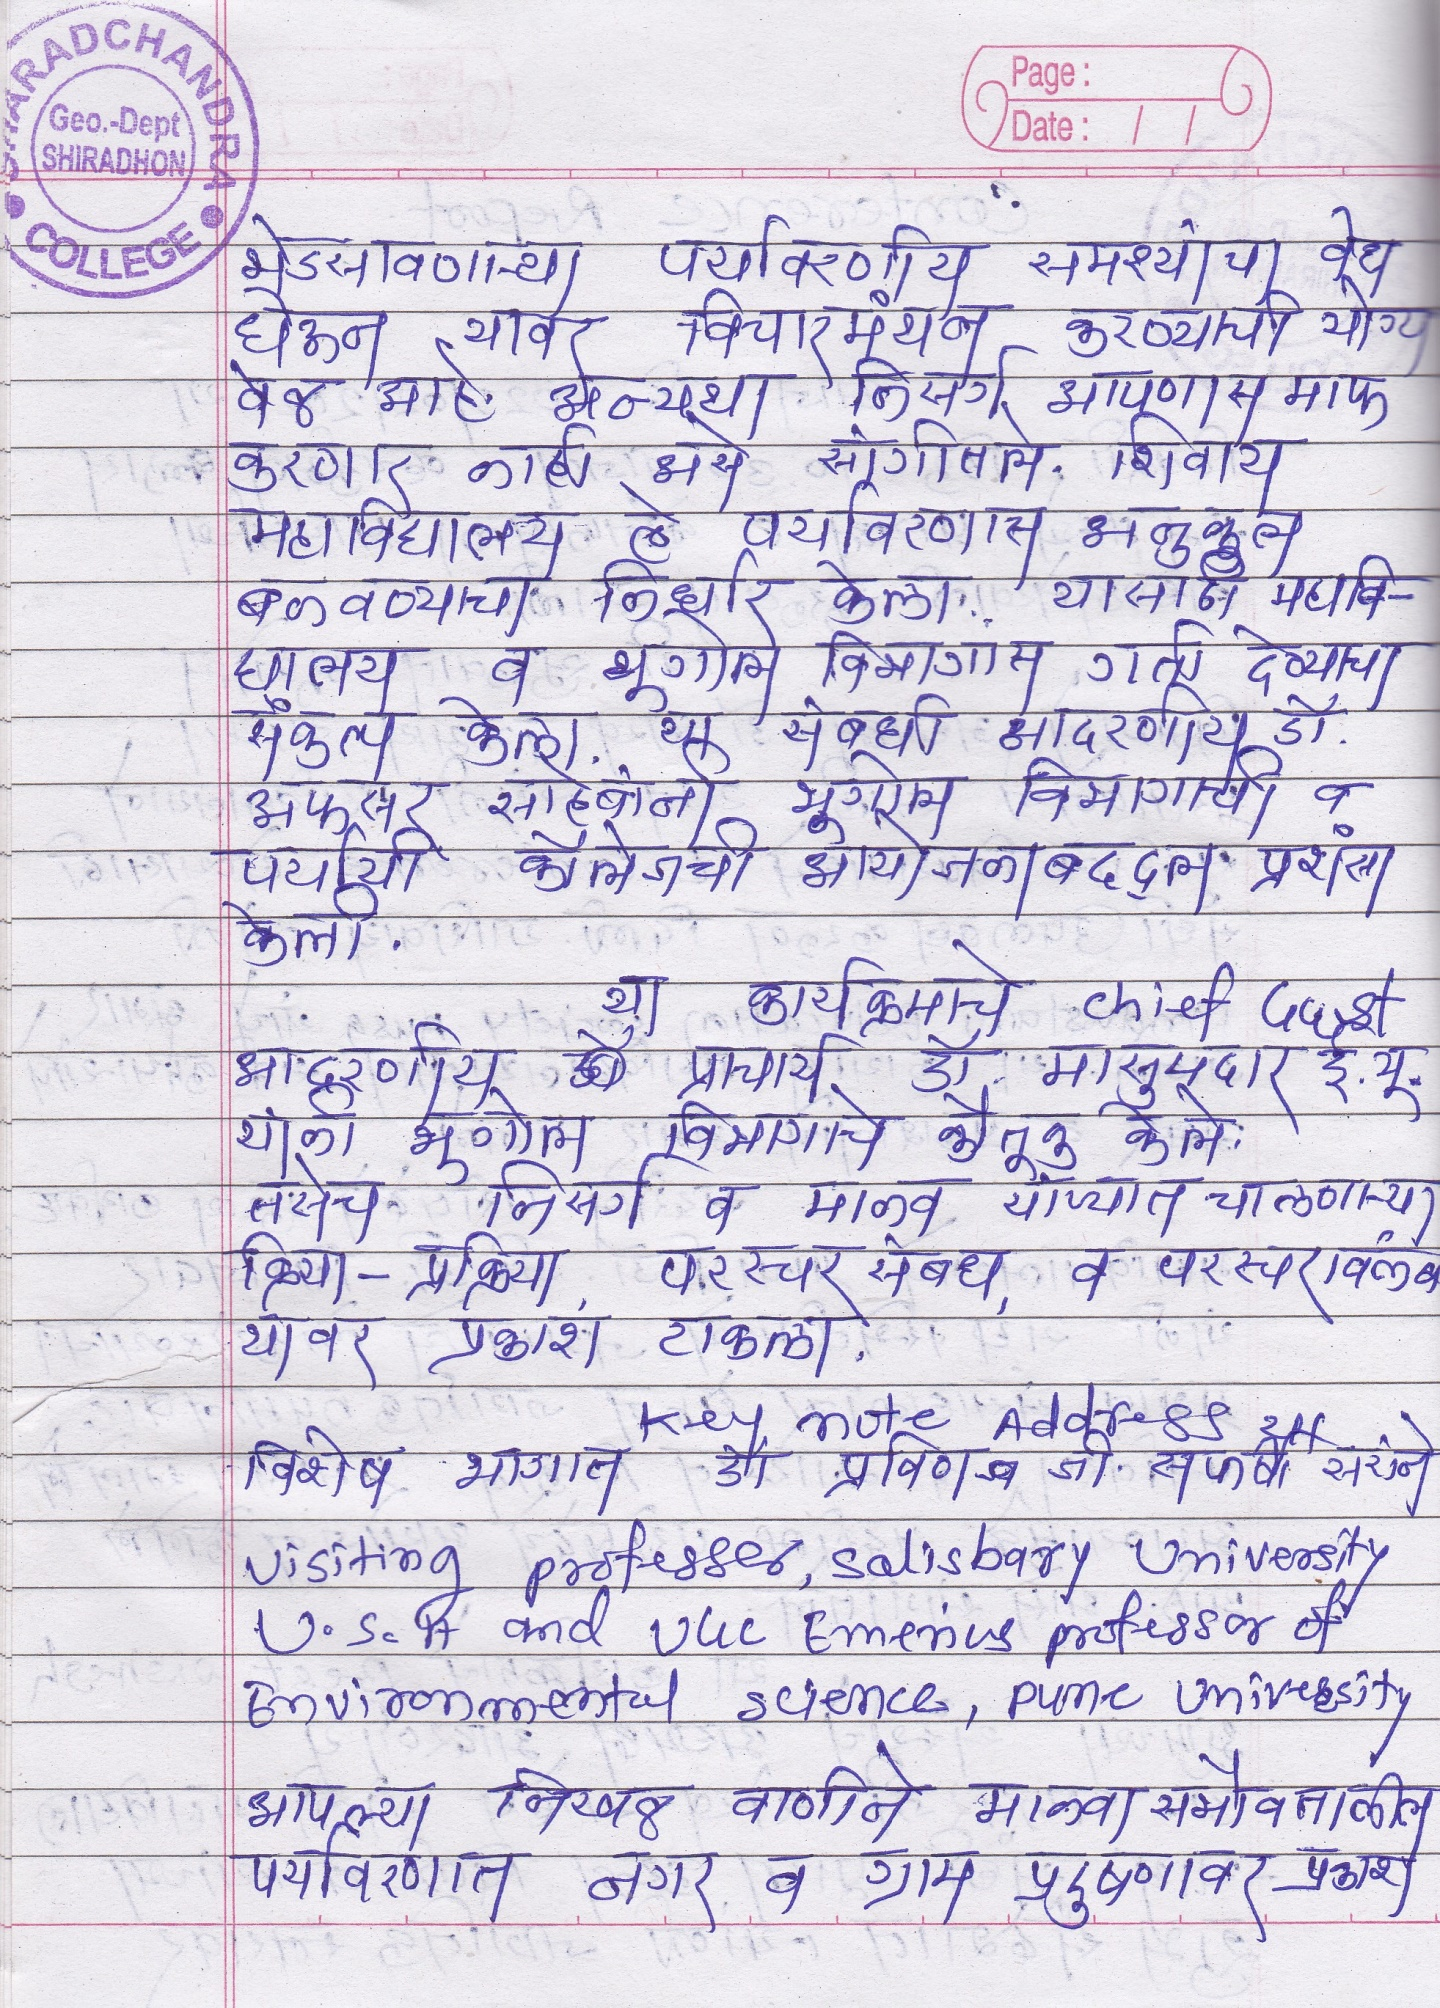 SHARADCHANDRA COLLEGE
Geo.-Dept
SHIRADHON
Page :
Date : / /
भेडसावणाऱ्या पर्यावरणीय समश्यांचा वेध
घेऊन यावर विचारमंथन करण्याची योग्य
वेळ आहे अन्यथा निसर्ग आपणास माफ
करणार नाही असे सांगीतले. शिवाय
महाविद्यालय हे पर्यावरणास अनुकुल
बनवण्याचा निर्धार केला. यासाठी महावि-
द्यालय व भूगोल विभागास गती देण्याचा
संकल्प केला. या संबधी आदरणीय डॉ.
अफसर साहेबांनी भुगोल विभागाची व
पर्यायी कॉलेजची आयोजनाबद्दल प्रशंसा
केली.
या कार्यक्रमाचे chief Guest
आदरणीय प्राचार्य डॉ. मासुमदार ई.यू.
यांनी भुगोल विभागाचे कौतूक केले.
तसेच निसर्ग व मानव यांच्यात चालणाऱ्या
क्रिया - प्रक्रिया, परस्पर संबध, व परस्परावलंब
यावर प्रकाश टाकला.
Key note Address या
विशेष भागात डॉ प्रविण जी. सप्तर्षी सरांने
visiting professer, salisbary University
U.S.A and UGC Emerius professor of
Environmental science, pune University
आपल्या निखळ वाणीने मानवा सभोवतालील
पर्यावरणात नगर व ग्राम प्रदुषणावर प्रकाश